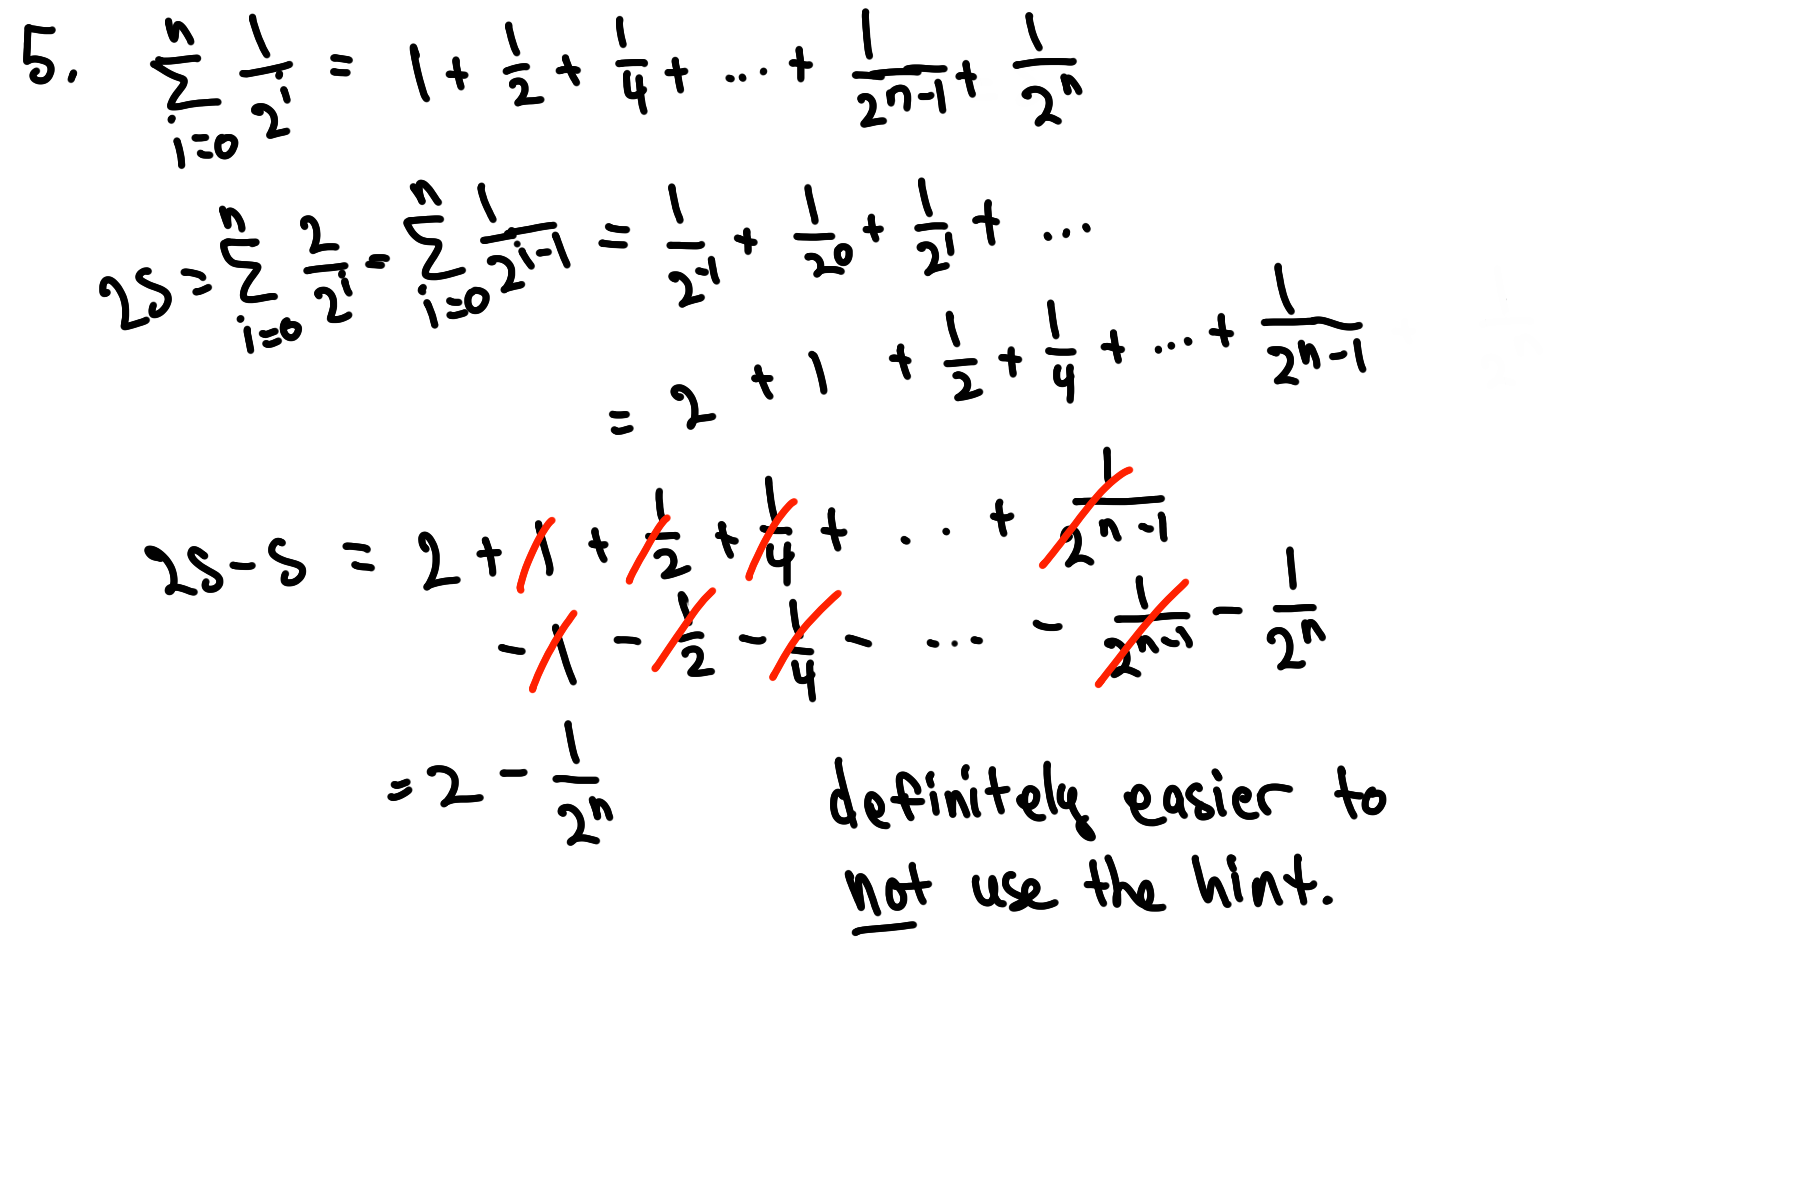 5. \sum_{i=0}^{n} \frac{1}{2^i} = 1 + \frac{1}{2} + \frac{1}{4} + ... + \frac{1}{2^{n-1}} + \frac{1}{2^n}
2S = \sum_{i=0}^{n} \frac{2}{2^i} = \sum_{i=0}^{n} \frac{1}{2^{i-1}} = \frac{1}{2^{-1}} + \frac{1}{2^0} + \frac{1}{2^1} + ...
= 2 + 1 + \frac{1}{2} + \frac{1}{4} + ... + \frac{1}{2^{n-1}}
2S - S = 2 + 1 + \frac{1}{2} + \frac{1}{4} + ... + \frac{1}{2^{n-1}}
- 1 - \frac{1}{2} - \frac{1}{4} - ... - \frac{1}{2^{n-1}} - \frac{1}{2^n}
= 2 - \frac{1}{2^n}
definitely easier to
not use the hint.